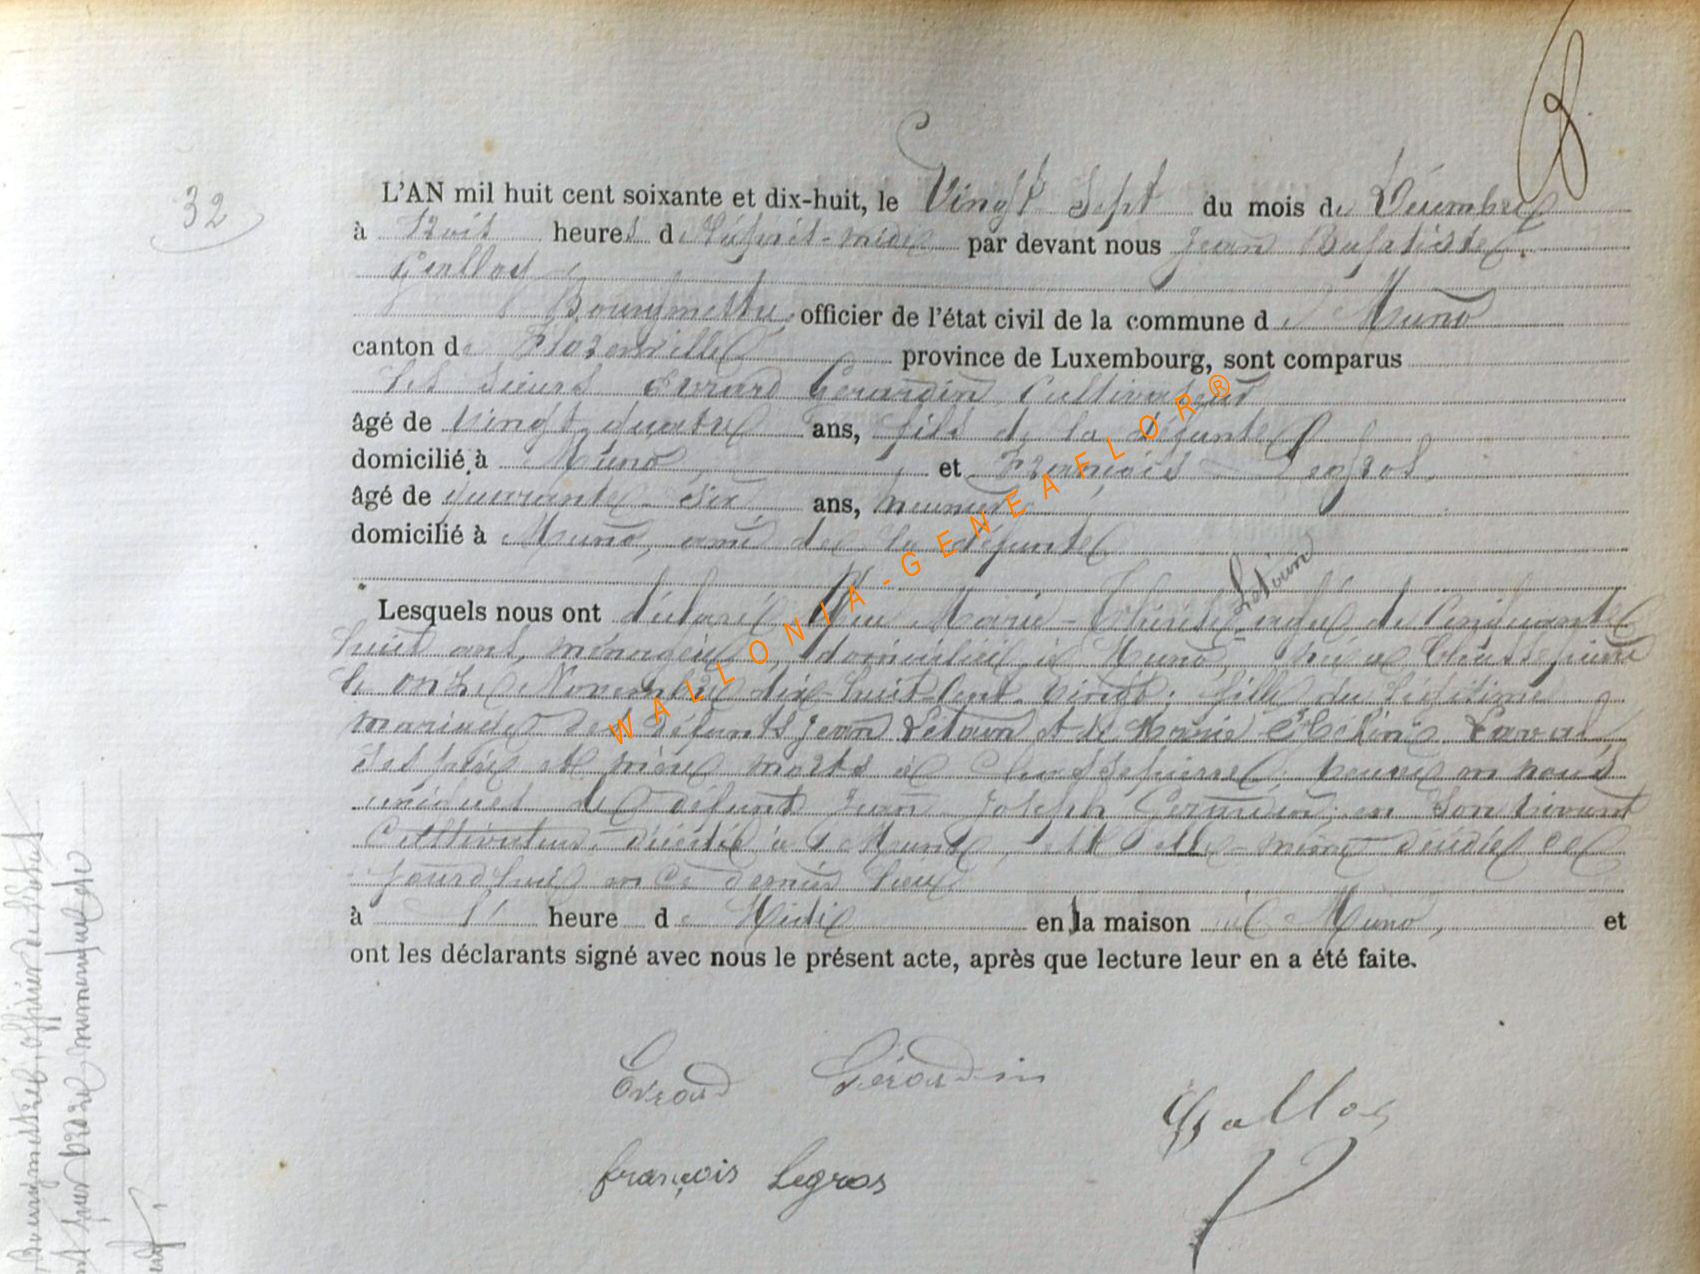 32
L'AN mil huit cent soixante et dix-huit, le Vingt Sept du mois de Décembre
à Trois heures de l'après-midi par devant nous Jean Baptiste
Gallos
Bourgmestre, officier de l'état civil de la commune de Muno
canton de Florenville province de Luxembourg, sont comparus
les sieurs Evrard Gérardin Cultivateur
âgé de Vingt quatre ans, fils de la défunte
domicilié à Muno et François Legros
âgé de quarante-six ans, meunier
domicilié à Muno, ami de la défunte
Letoin
Lesquels nous ont déclaré que Marie-Thérèse agée de Cinquante
huit ans, ménagère, domiciliée à Muno, née à Chassepierre
le onze Novembre dix-huit-cent-vingt, fille du légitime
mariage des défunts Jean Letoin et de Marie Laval
ses père et mère morts à Chassepierre, veuve en
de défunt Jean Joseph Gérardin, en son vivant
Cultivateur, décédé à Muno, elle-même décédée ce
jourd'hui en ce dernier lieu
à heure de Midi en la maison à Muno, et
ont les déclarants signé avec nous le présent acte, après que lecture leur en a été faite.
Evrard Gérardin
Gallos
françois Legros
Bourgmestre, officier de
WALLONIA-GENEAFLOR®